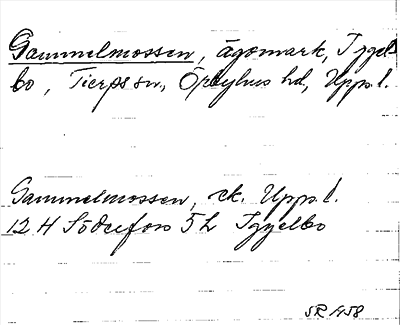 Gammelmossen, ägomark, Tygels-
bo, Tierps sn, Örbyhus hd, Uppl.
Gammelmossen, ek. Uppl.
12 H Söderfors 5 h Tygelbo
SR 1958